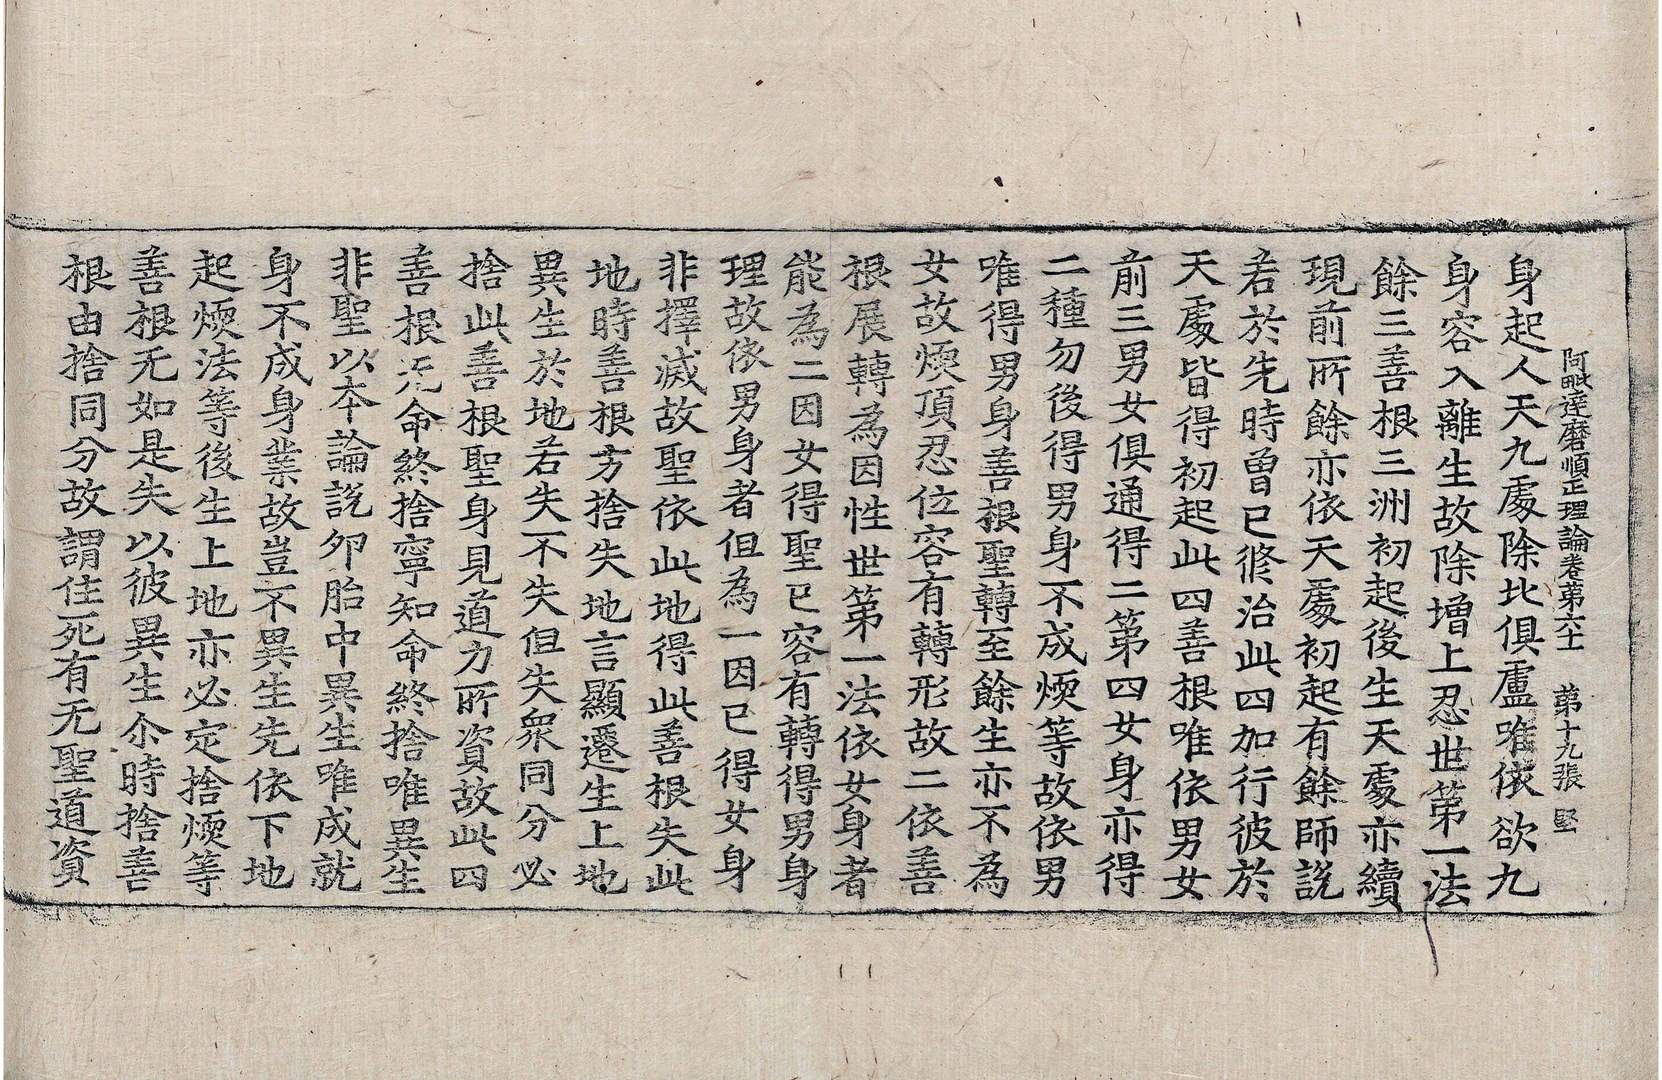 阿毗達磨順正理論卷第六十一　第十九張　堅
身起人天九處除北俱盧唯依欲九
身容入離生故除增上忍世第一法
餘三善根三洲初起後生天處亦續
現前所餘亦依天處初起有餘師說
若於先時曾已修治此四加行彼於
天處皆得初起此四善根唯依男女
前三男女俱通得二第四女身亦得
二種勿後得男身不成煗等故依男
唯得男身善根聖轉至餘生亦不為
女故煗頂忍位容有轉形故二依善
根展轉為因性世第一法依女身者
能為二因女得聖已容有轉得男身
理故依男身者但為一因已得女身
非擇滅故聖依此地得此善根失此
地時善根方捨失地言顯遷生上地
異生於地若失不失但失衆同分必
捨此善根聖身見道力所資故此四
善根无命終捨寧知命終捨唯異生
非聖以本論說卵胎中異生唯成就
身不成身業故豈不異生先依下地
起煗法等後生上地亦必定捨煗等
善根无如是失以彼異生尒時捨善
根由捨同分故謂住死有无聖道資